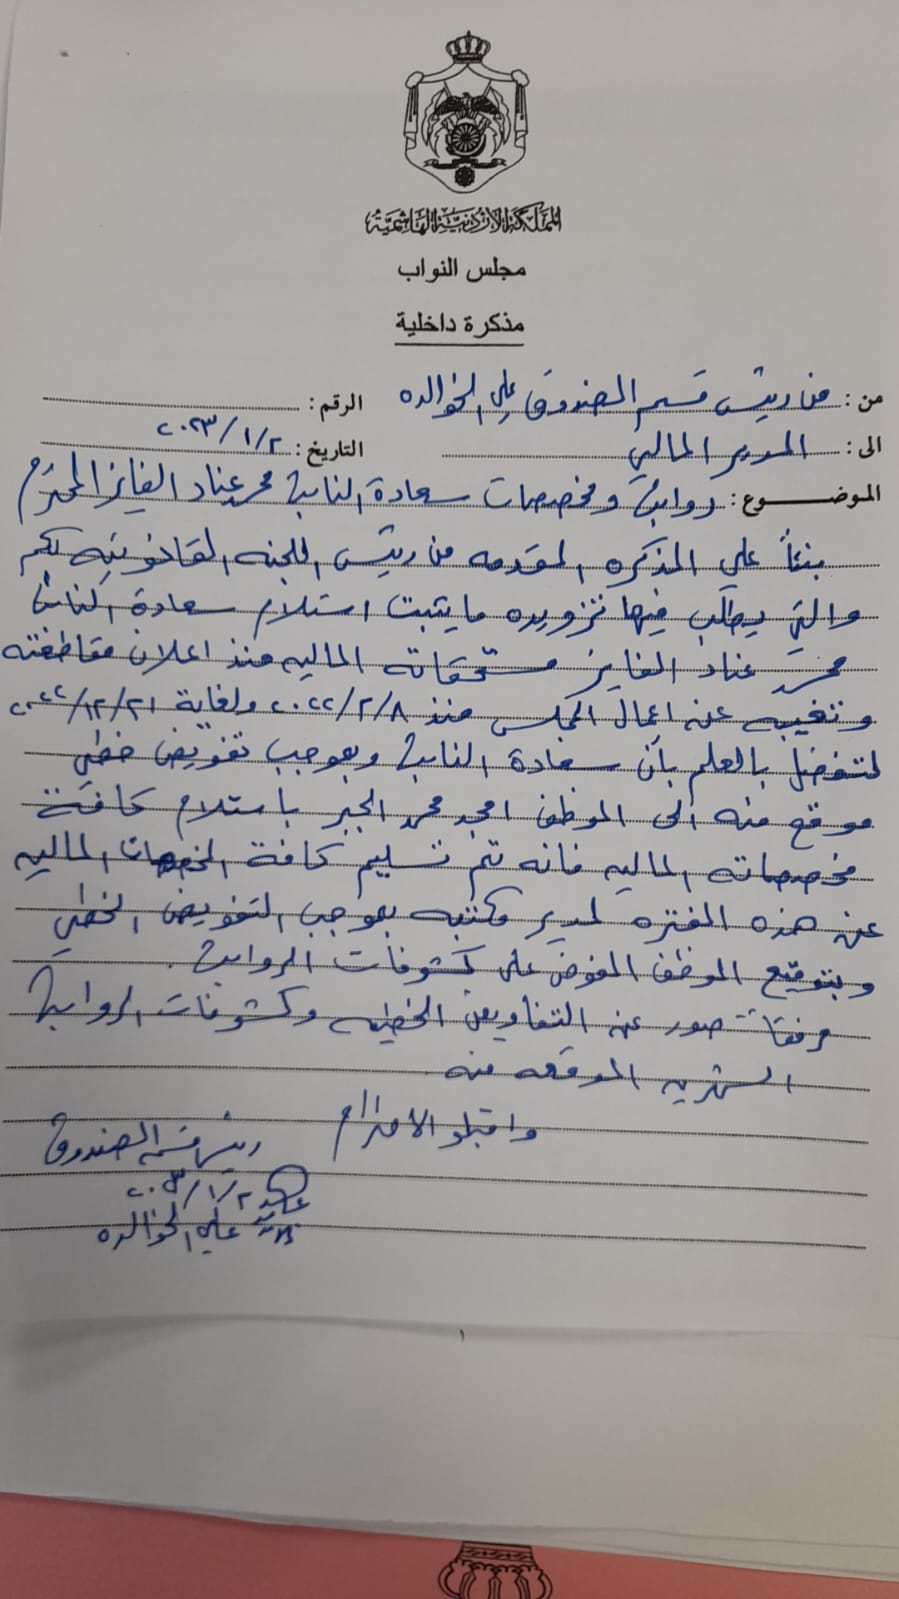 المملكة الأردنية الهاشمية
مجلس النواب
مذكرة داخلية
من : من رئيس قسم الصندوق علي الخوالده
الرقم :
الى : المدير المالي
التاريخ : ٢٠٢٣/١/٢
الموضوع : رواتب ومخصصات سعادة النائب محمد عناد الفايز المحترم
بنءاً على المذكره المقدمه من رئيس اللجنه القانونيه لكم
والتي يطلب فيها تزويده ما يثبت استلام سعادة النائب
محمد عناد الفايز مستحقاته الماليه منذ اعلان مقاطعته
وتغيبه عن اعمال المجلس منذ ٢٠٢٢/٢/٨ ولغاية ٢٠٢٢/١٢/٢١
لتتفضل بالعلم بأن سعادة النائب وبموجب تفويض خطي
موقع منه الى الموظف امجد محمد الجبر باستلام كافة
مخصصاته الماليه فانه تم تسليم كافة المخصصات الماليه
عن هذه الفتره لمدير مكتبه بموجب التفويض الخطي
وبتوقيع الموظف المفوض على كشوفات الرواتب .
مرفقاً صور عن التفاويض الخطيه وكشوفات الرواتب
الشهريه الموقعه منه
واقبلو الاحترام
رئيس قسم الصندوق
٢٠٢٣/١/٢
علي الخوالده